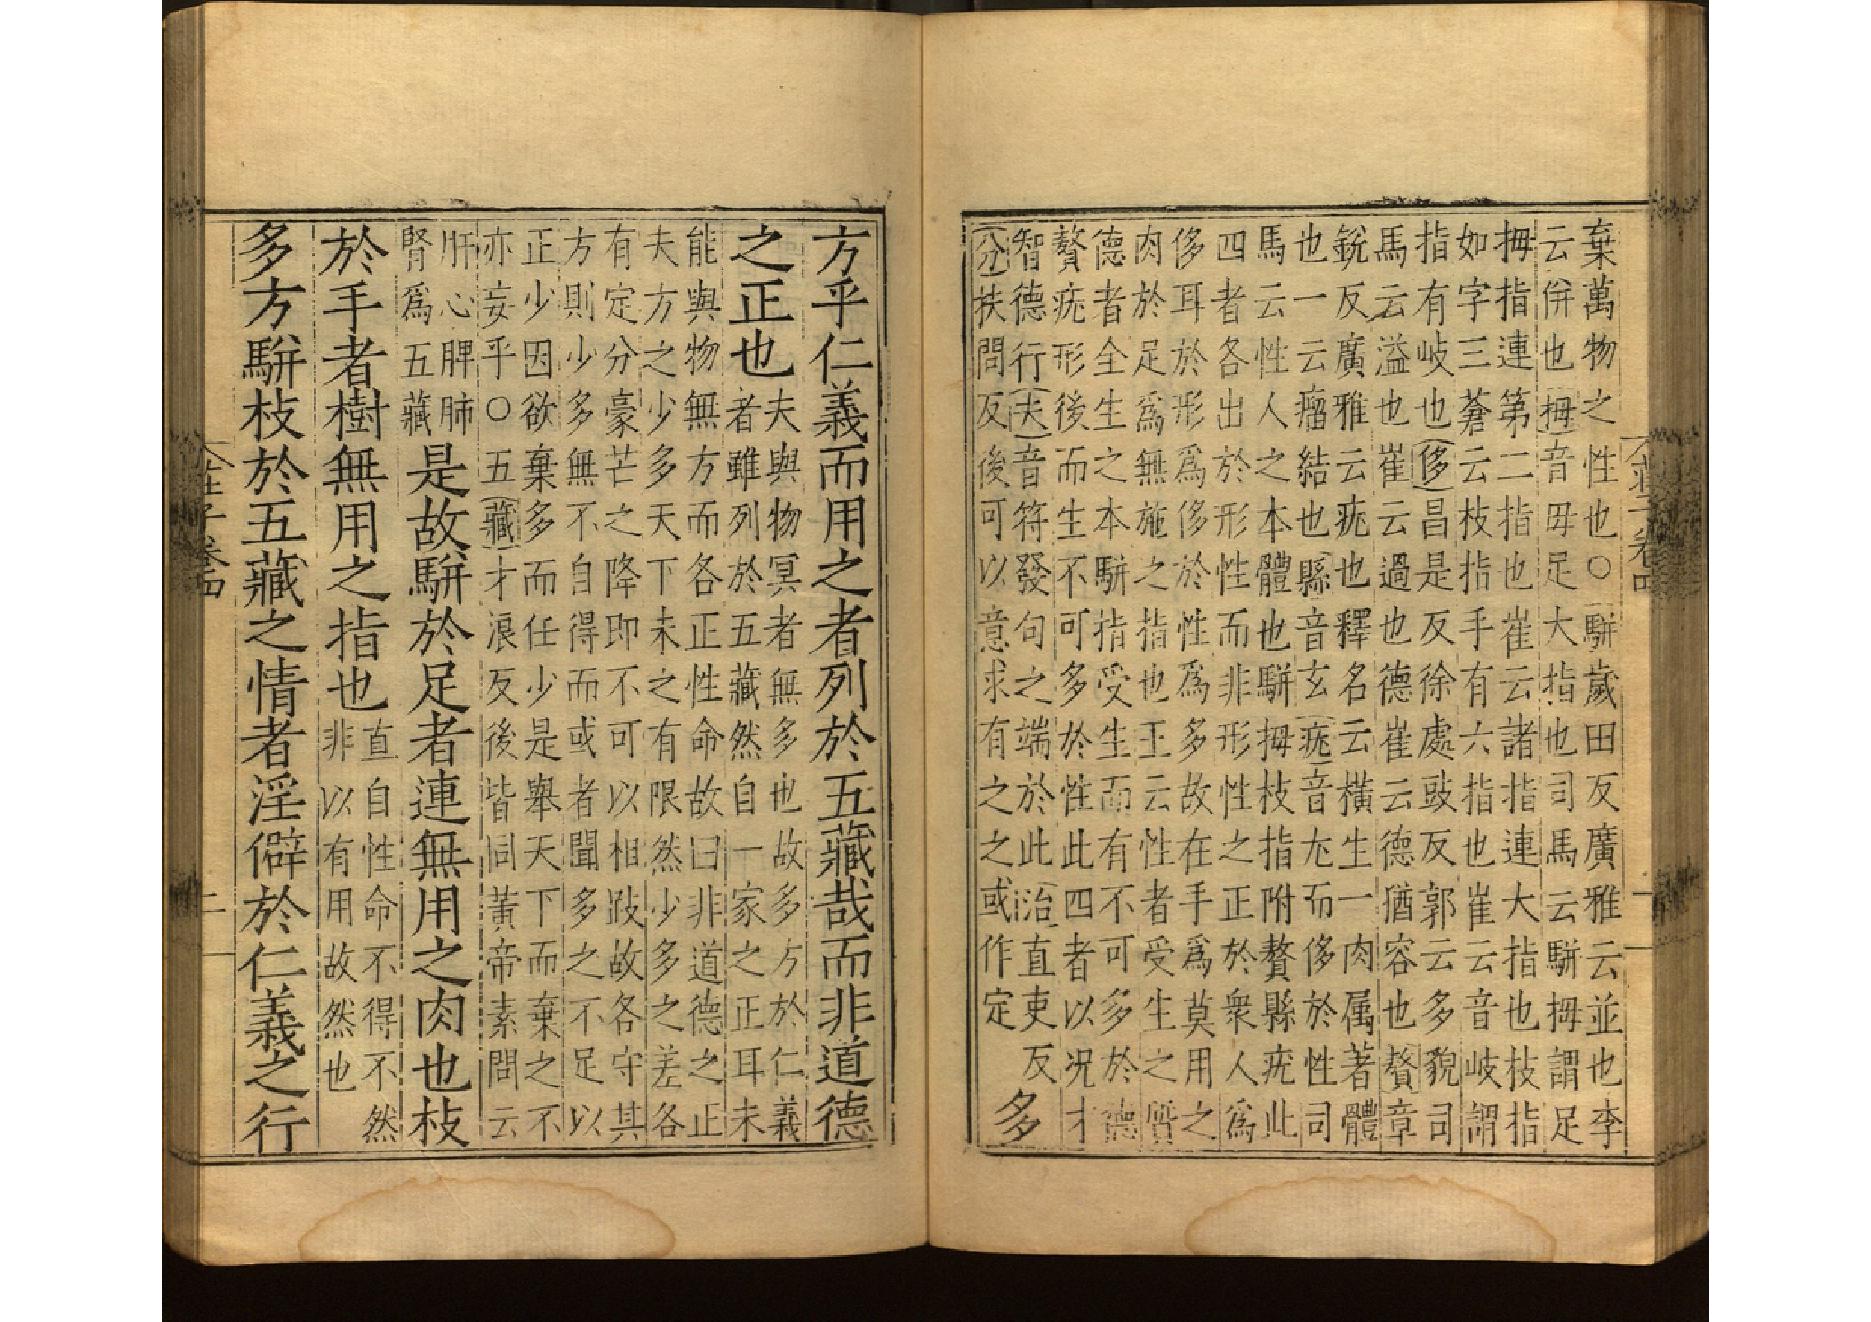 棄萬物之性也○駢歲田反廣雅云並也李
云併也拇音毋足大指也司馬云駢拇謂足
拇指連第二指也崔云諸指連大指也枝指
如字三蒼云枝指手有六指也崔云音岐謂
指有岐也侈昌是反徐處豉反郭云多貌司
馬云溢也崔云過也德崔云德猶容也贅章
銳反廣雅云疣也釋名云橫生一肉属著體
也一云瘤結也縣音玄疣音尤而侈於性司
馬云性人之本體也駢拇枝指附贅縣疣此
四者各出於形性而非形性之正於衆人爲
侈耳於形爲侈於性爲多故在手爲莫用之
肉於足爲無施之指也王云性者受生之質
德者全生之本駢指受生而有不可多於德
贅疣形後而生不可多於性此四者以况才
智德行夫音符發句之端於此治直吏反
分扶問反後可以意求有之之或作定
多
方乎仁義而用之者列於五藏哉而非道德
之正也
夫與物冥者無多也故多方於仁義
者雖列於五藏然自一家之正耳未
能與物無方而各正性命故曰非道德之正
夫方之少多天下未之有限然少多之差各
有定分豪芒之降即不可以相跂故各守其
方則少多無不自得而或者聞多之不足以
正少因欲棄多而任少是舉天下而棄之不
亦妄乎○五藏才浪反後皆同黃帝素問云
肝心脾肺
腎爲五藏
是故駢於足者連無用之肉也枝
於手者樹無用之指也
直自性命不得不然
非以有用故然也
多方駢枝於五藏之情者淫僻於仁義之行